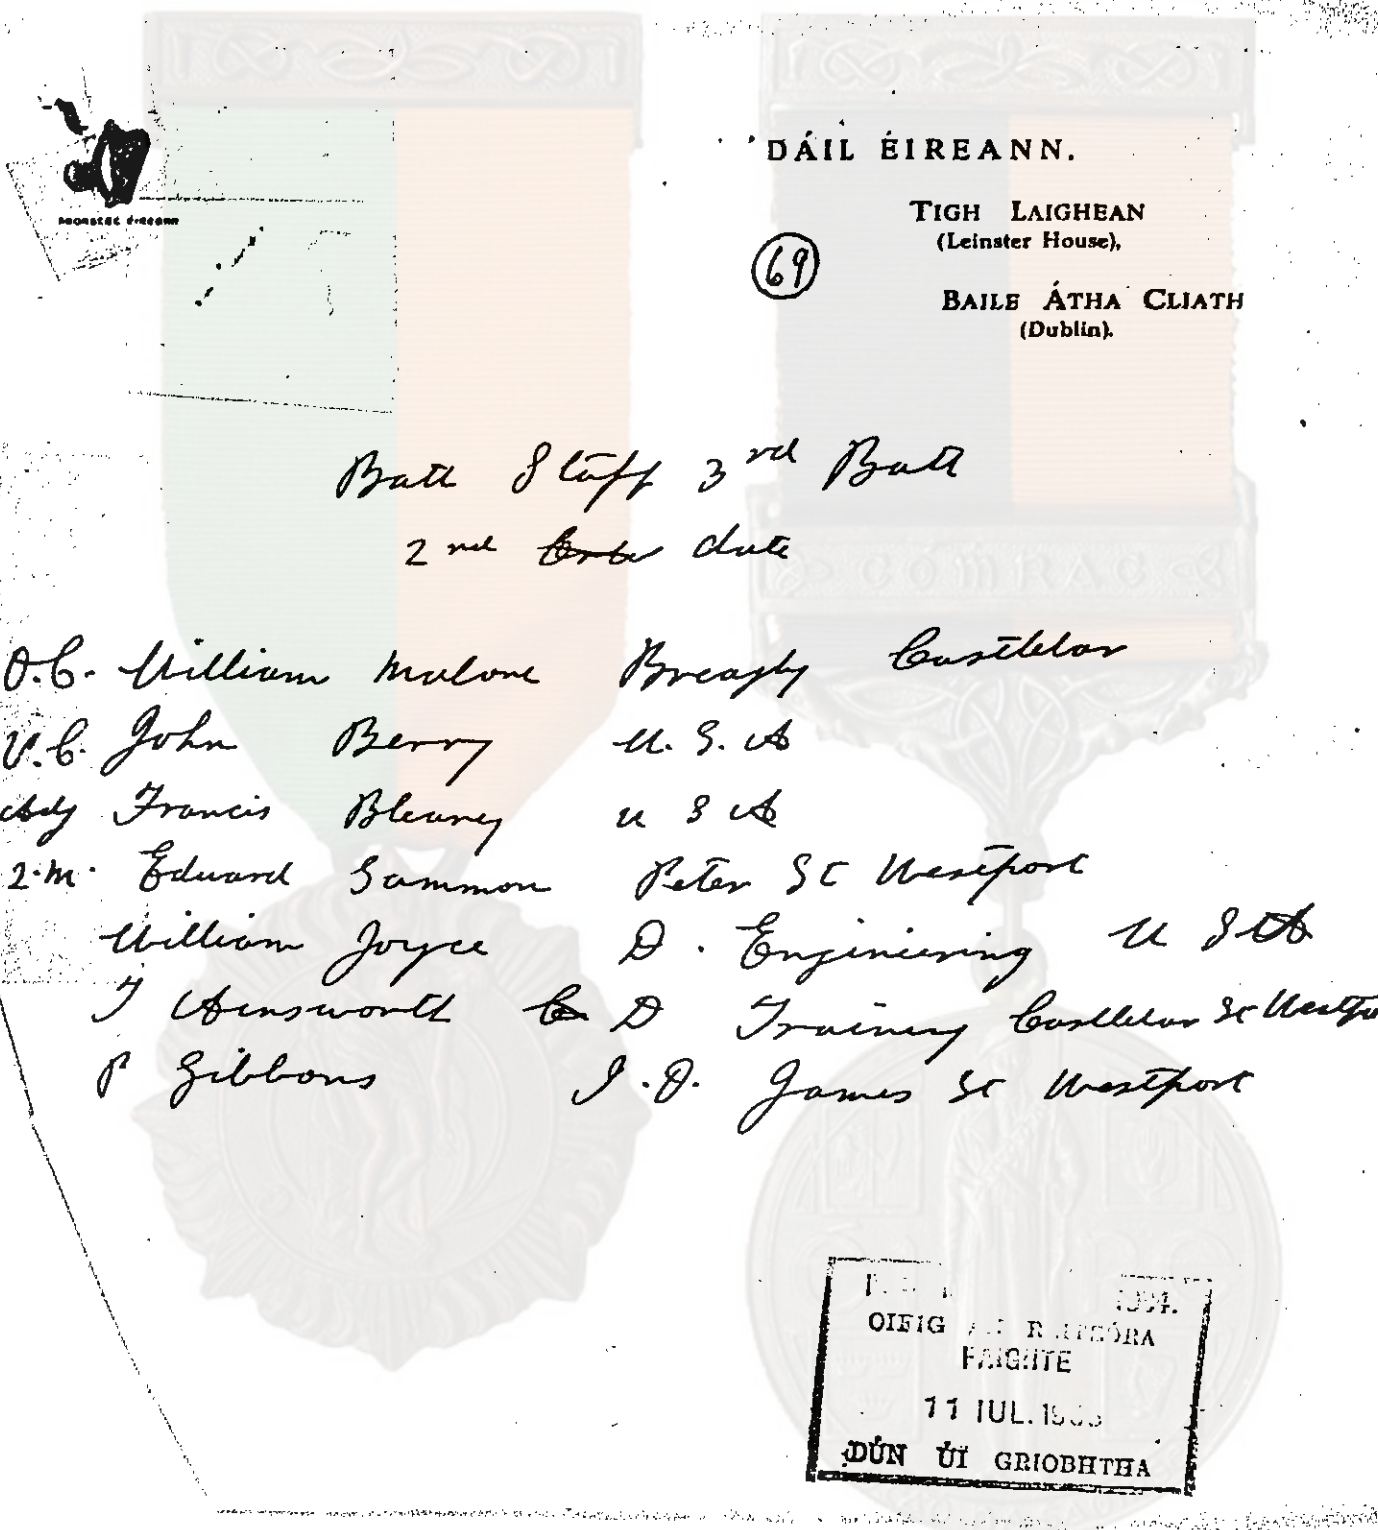 DÁIL ÉIREANN.
TIGH LAIGHEAN
(Leinster House),
69
BAILE ÁTHA CLIATH
(Dublin).
saorstát éireann
Batt Staff 3rd Batt
2nd date
O.C. William Malone Breaghy Castlebar
V.C. John Berry U.S.A
Adj Francis Bleaney U S A
Q.M. Edward Sammon Peter St Westport
William Joyce D. Engineering U S A
T Ainsworth D Training Castlebar St Westpo
P Gibbons I.O. James St Westport
CÓMRAC
OIFIG AN RÉITEÓRA
FAIGHTE
11 IUL. 19
DÚN UÍ GRIOBHTHA